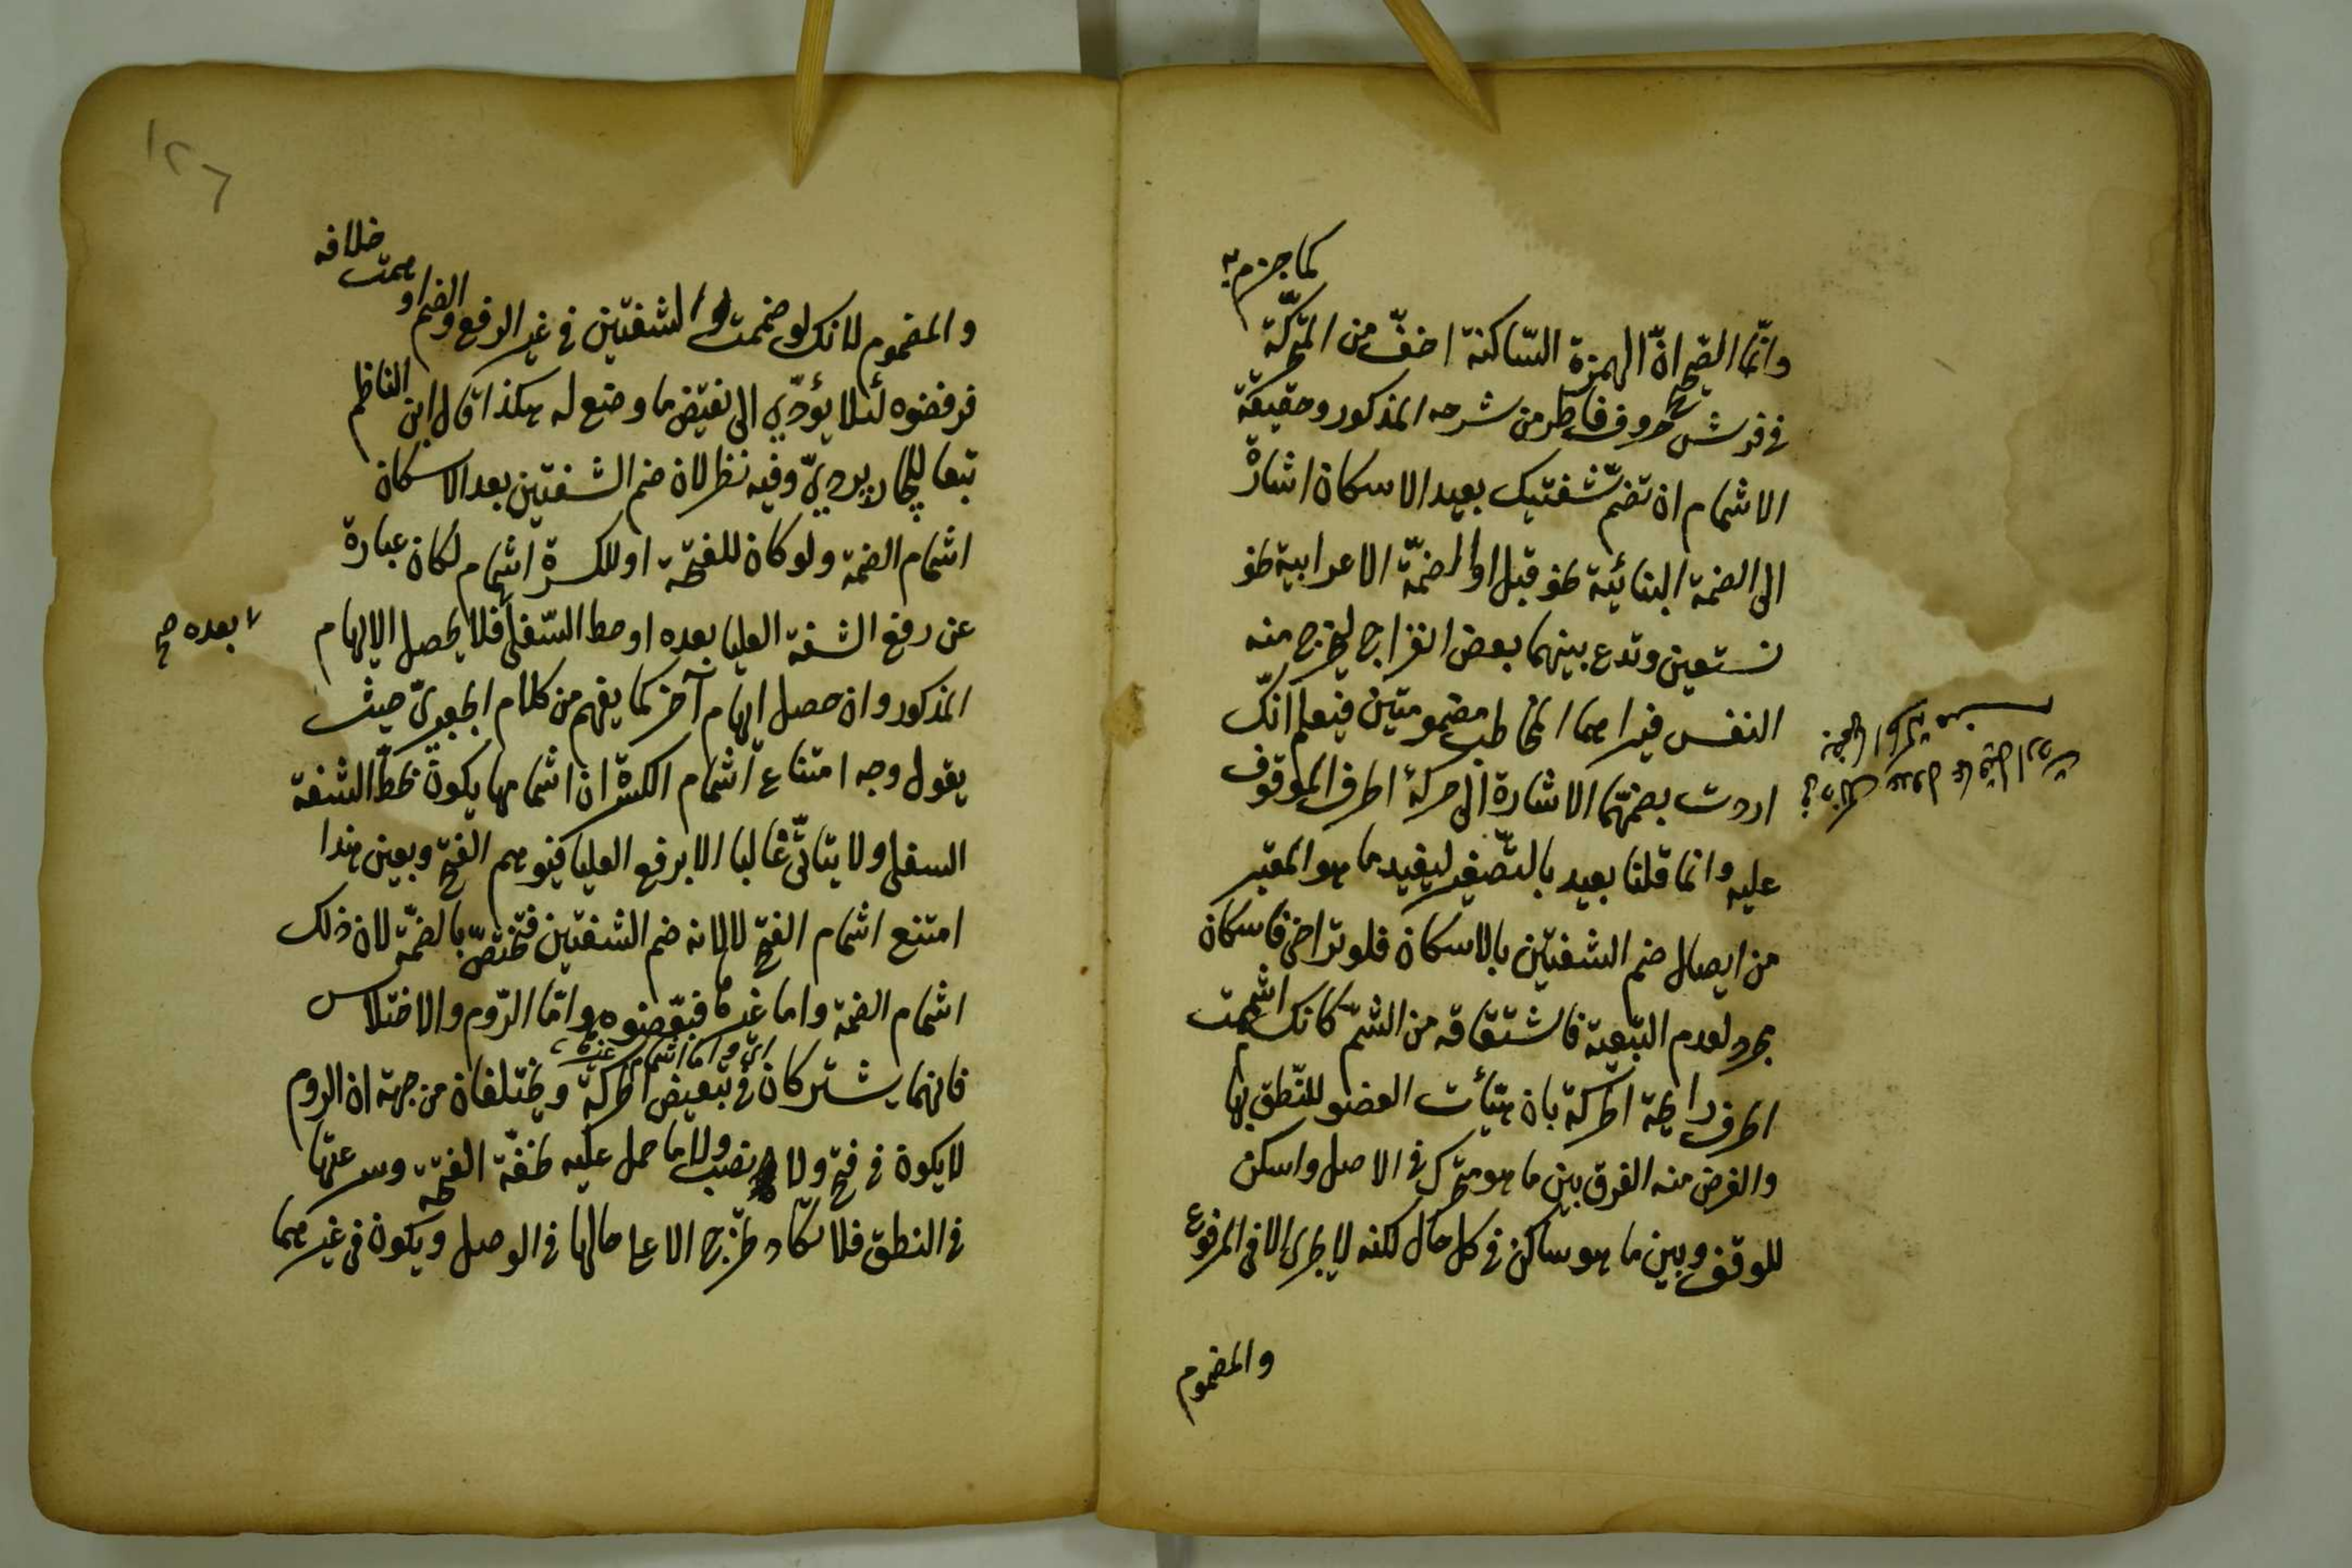 وانّما الصحيح انّ الهمزة السّاكنة اخفّ من المتحرّكة كما جزم به
في فرش الحروف فانظر من شرحه المذكور وحقيقة
الاشمام ان تضمّ شفتيك بعيد الاسكان اشارة
الى الضمة البنائية نحو قبل او الضمّة الاعرابية نحو
نستعين وتدع بينهما بعض انفراج ليخرج منه
النفس فيراهما المخاطب مضمومتين فيعلم انّك
اردت بضمّهما الاشارة الى حركة الحرف الموقوف
عليه وانما قلنا بعيد بالتّصغير ليفيد ما هو المعتبر
من ايصال ضم الشفتين بالاسكان فلو تراخى فاسكان
مجرد لعدم التبعية فاشتقاقه من الشمّ كانك اشممت
الحرف رايحة الحركة بان هيّأت العضو للنّطق بها
والغرض منه الفرق بين ما هو متحرك في الاصل واسكن
للوقف وبين ما هو ساكن في كل حال لكنه لا يجرى الا في المرفوع
والمضموم
١٢٦
والمضموم لانك لو ضممت الشفتين في غير الرفع والضم اوهمت خلافه
فرفضوه لئلا يؤدّي الى نقيض ما وضع له هكذا قال ابن الناظم
تبعا للجاربرديّ وفيه نظر لان ضم الشفتين بعد الاسكان
اشمام الضمة ولو كان للفتحة او للكسرة اشمام لكان عبارة
عن رفع الشفة العليا بعده او حط السّفلى فلا يحصل الايهام
بعده صح
المذكور وان حصل ايهام آخر كما يفهم من كلام الجعبريّ حيث
يقول وجه امتناع اشمام الكسرة ان اشمامها يكون بحطّ الشفة
السفلى ولا يتاتّى غالبا الا برفع العليا فيوهم الفتح وبعين هذا
امتنع اشمام الفتح لا لانه ضم الشفتين فتختصّ بالضمّة لان ذلك
اشمام الضمة واما غيرها فبعّضوه وامّا الرّوم والاختلاس
اي واما اشمام غيرها
فانهما يشتركان في تبعيض الحركة ويختلفان من جهة ان الروم
لا يكون في فتح ولا نصب ولا ما حمل عليه لخفّة الفتحة وسرعتها
في النطق فلا تكاد تخرج الا على حالها في الوصل ويكون في غيرهما